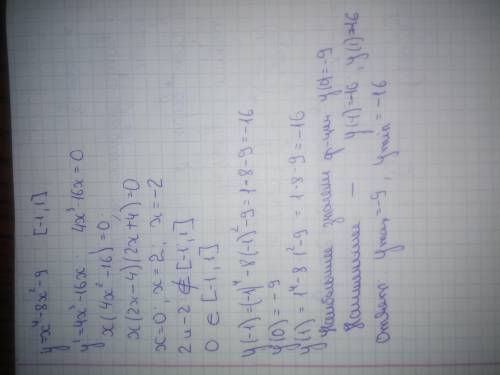 y=x⁴-8x²-9 [-1,1]
y'=4x³-16x. 4x³-16x=0
x(4x²-16)=0
x(2x-4)(2x+4)=0
x=0, x=2, x=-2
2 и -2 ∉ [-1,1]
0 ∈ [-1,1]
y(-1)=(-1)⁴-8(-1)²-9=1-8-9=-16
y(0)=-9
y(1)=1⁴-8·1²-9=1-8-9=-16
Наибольшее значение ф-ции y(0)=-9
Наименьшее — y(-1)=-16, y(1)=-16
Ответ: y max=-9, y min=-16